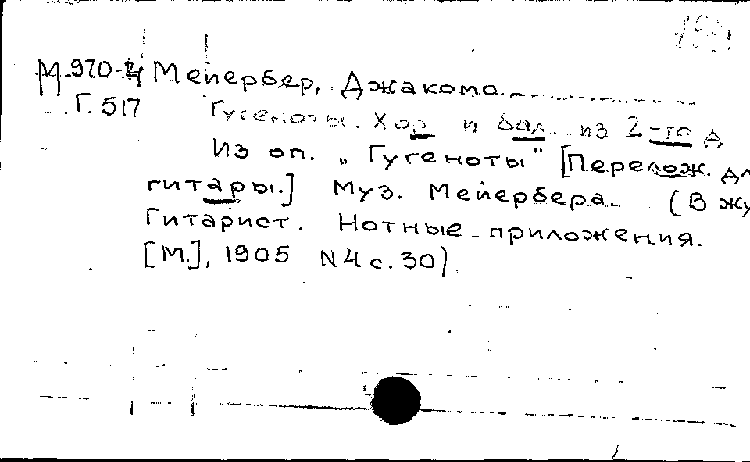 М.970-4 Мейербер, Джакомо.
Г.517 Гугеноты. Хор и бал. из 2-го д
Из оп. „Гугеноты" [Перелож. дл
гитары.] Муз. Мейербера. (В жу
Гитарист. Нотные приложения.
[М.], 1905 N4 с. 30)